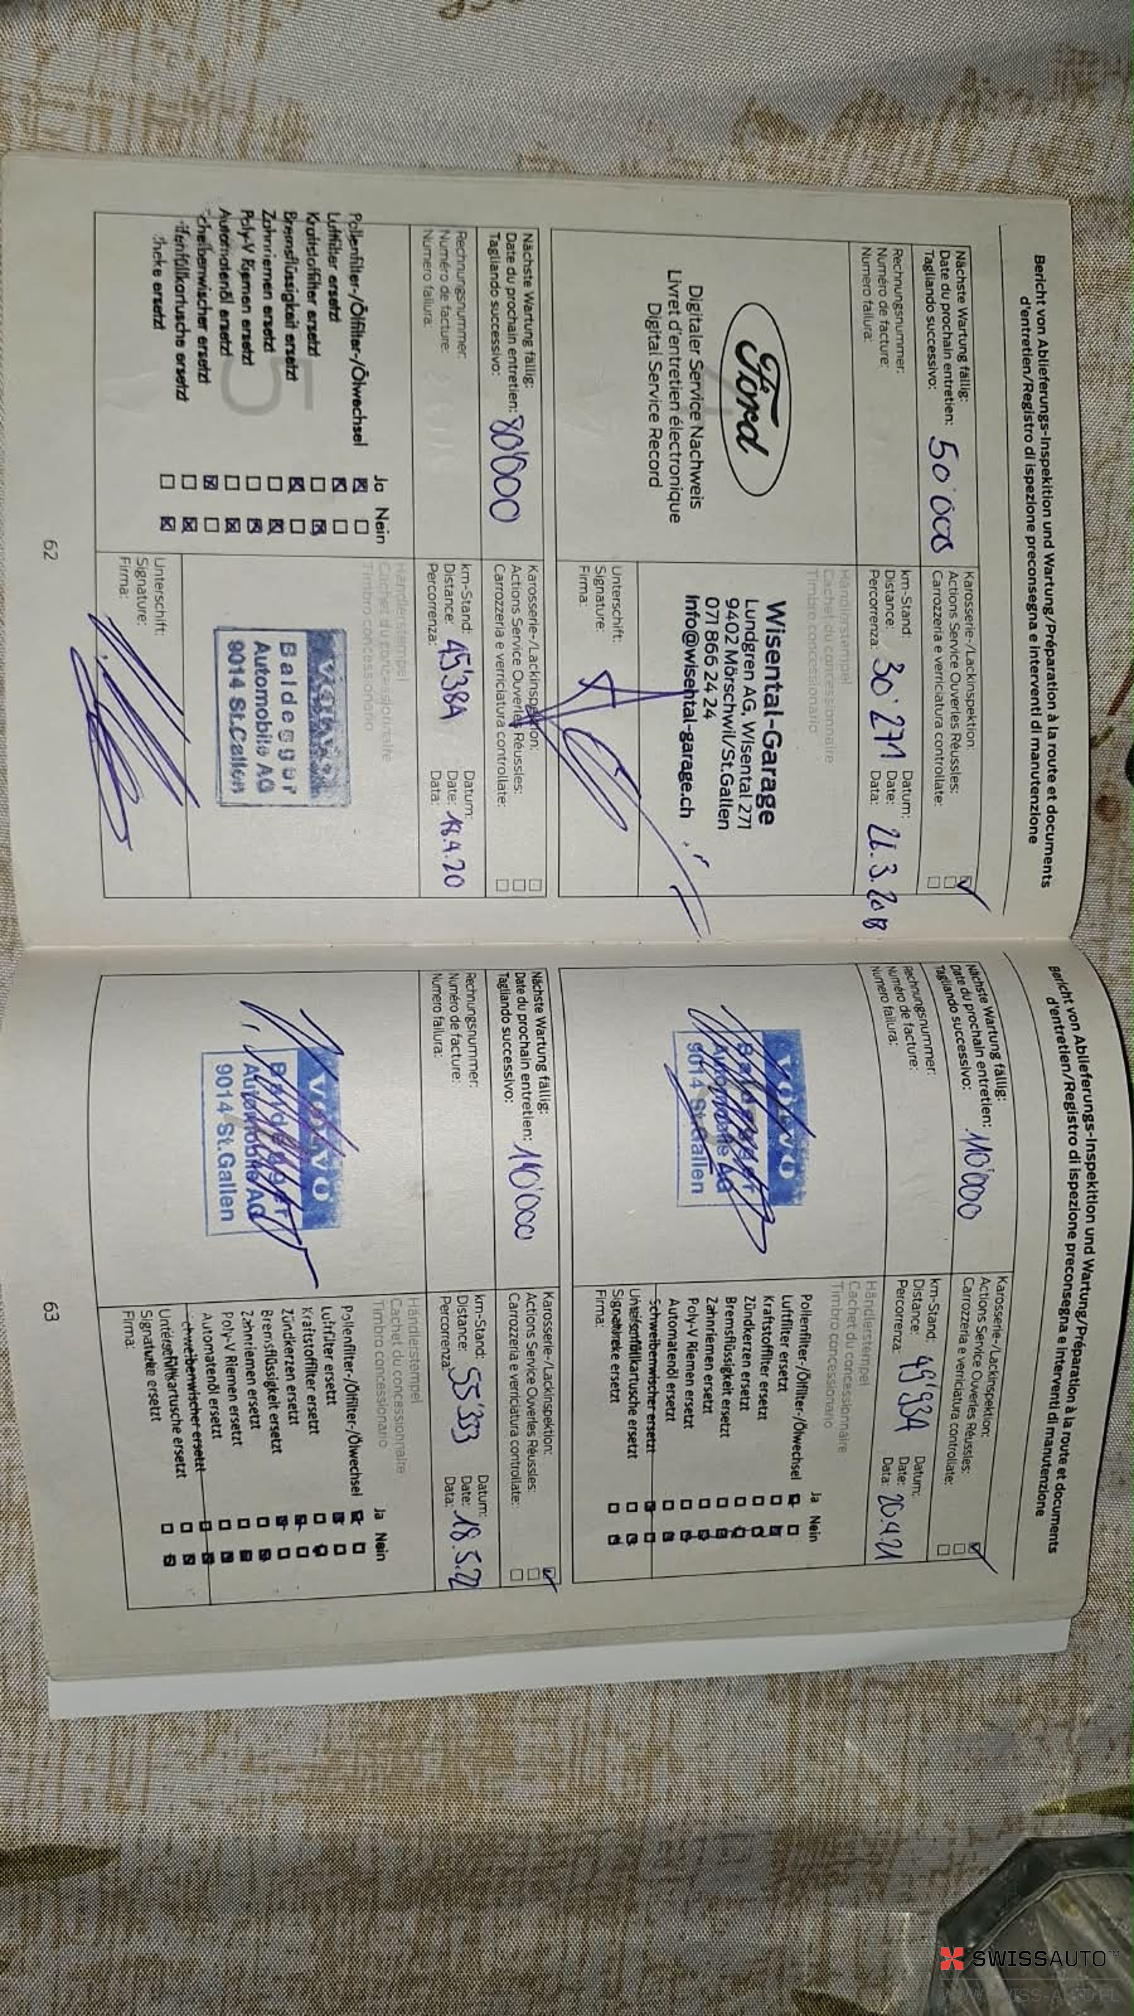 Bericht von Ablieferungs-Inspekition und Wartung/Préparation à la route et documents
d'entretien/Registro di ispezione preconsegna e interventi di manutenzione
Nächste Wartung fällig:
Date du prochain entretien: 50'000
Tagliando successivo:
Karosserie-/Lackinspektion:
Actions Service Ouverles Réussles:
Carrozzeria e verriciatura controllate:
Rechnungsnummer:
Numéro de facture:
Numero failura:
km-Stand:
Distance: 30'271
Percorrenza:
Datum:
Date: 22.3.2018
Data:
Ford
Digitaler Service Nachweis
Livret d'entretien électronique
Digital Service Record
Händlerstempel
Cachet du concessionnaire
Timbro concessionario
Wisental-Garage
Lundgren AG, Wisental 271
9402 Mörschwil/St.Gallen
071 866 24 24
info@wisental-garage.ch
Unterschift:
Signature:
Firma:
Nächste Wartung fällig:
Date du prochain entretien: 80'000
Tagliando successivo:
Karosserie-/Lackinspektion:
Actions Service Ouverles Réussles:
Carrozzeria e verriciatura controllate:
Rechnungsnummer:
Numéro de facture:
Numero failura:
km-Stand:
Distance: 45'384
Percorrenza:
Datum:
Date: 18.4.20
Data:
Ja Nein
Pollenfilter-/Ölfilter-/Ölwechsel
Luftfilter ersetzt
Kraftstoffilter ersetzt
Bremsflüssigkeit ersetzt
Zahnriemen ersetzt
Poly-V Riemen ersetzt
Automatenöl ersetzt
cheibenwischer ersetzt
ifenfüllkartusche ersetzt
hcke ersetzt
5
Händlerstempel
Cachet du concessionnaire
Timbro concessionario
VOLVO
Baldegger
Automobile AG
9014 St.Gallen
Unterschift:
Signature:
Firma:
62
Bericht von Ablieferungs-Inspekition und Wartung/Préparation à la route et documents
d'entretien/Registro di ispezione preconsegna e interventi di manutenzione
Nächste Wartung fällig:
Date du prochain entretien: 110'000
Tagliando successivo:
Karosserie-/Lackinspektion:
Actions Service Ouverles Réussles:
Carrozzeria e verriciatura controllate:
Rechnungsnummer:
Numéro de facture:
Numero failura:
km-Stand:
Distance: 49'934
Percorrenza:
Datum:
Date: 20.4.21
Data:
VOLVO
Baldegger
Automobile AG
9014 St.Gallen
Händlerstempel
Cachet du concessionnaire
Timbro concessionario
Ja Nein
Pollenfilter-/Ölfilter-/Ölwechsel
Luftfilter ersetzt
Kraftstoffilter ersetzt
Zündkerzen ersetzt
Bremsflüssigkeit ersetzt
Zahnriemen ersetzt
Poly-V Riemen ersetzt
Automatenöl ersetzt
Scheibenwischer ersetzt
Firma:
Nächste Wartung fällig:
Date du prochain entretien: 140'000
Tagliando successivo:
Karosserie-/Lackinspektion:
Actions Service Ouverles Réussles:
Carrozzeria e verriciatura controllate:
Rechnungsnummer:
Numéro de facture:
Numero failura:
km-Stand:
Distance: 55'333
Percorrenza:
Datum:
Date: 18.5.22
Data:
VOLVO
Baldegger
Automobile AG
9014 St.Gallen
Händlerstempel
Cachet du concessionnaire
Timbro concessionario
Ja Nein
Pollenfilter-/Ölfilter-/Ölwechsel
Luftfilter ersetzt
Kraftstoffilter ersetzt
Zündkerzen ersetzt
Bremsflüssigkeit ersetzt
Zahnriemen ersetzt
Poly-V Riemen ersetzt
Automatenöl ersetzt
cheibenwischer ersetzt
Firma:
63
SWISSAUTO
WWW.SWISS-AUTO.PL